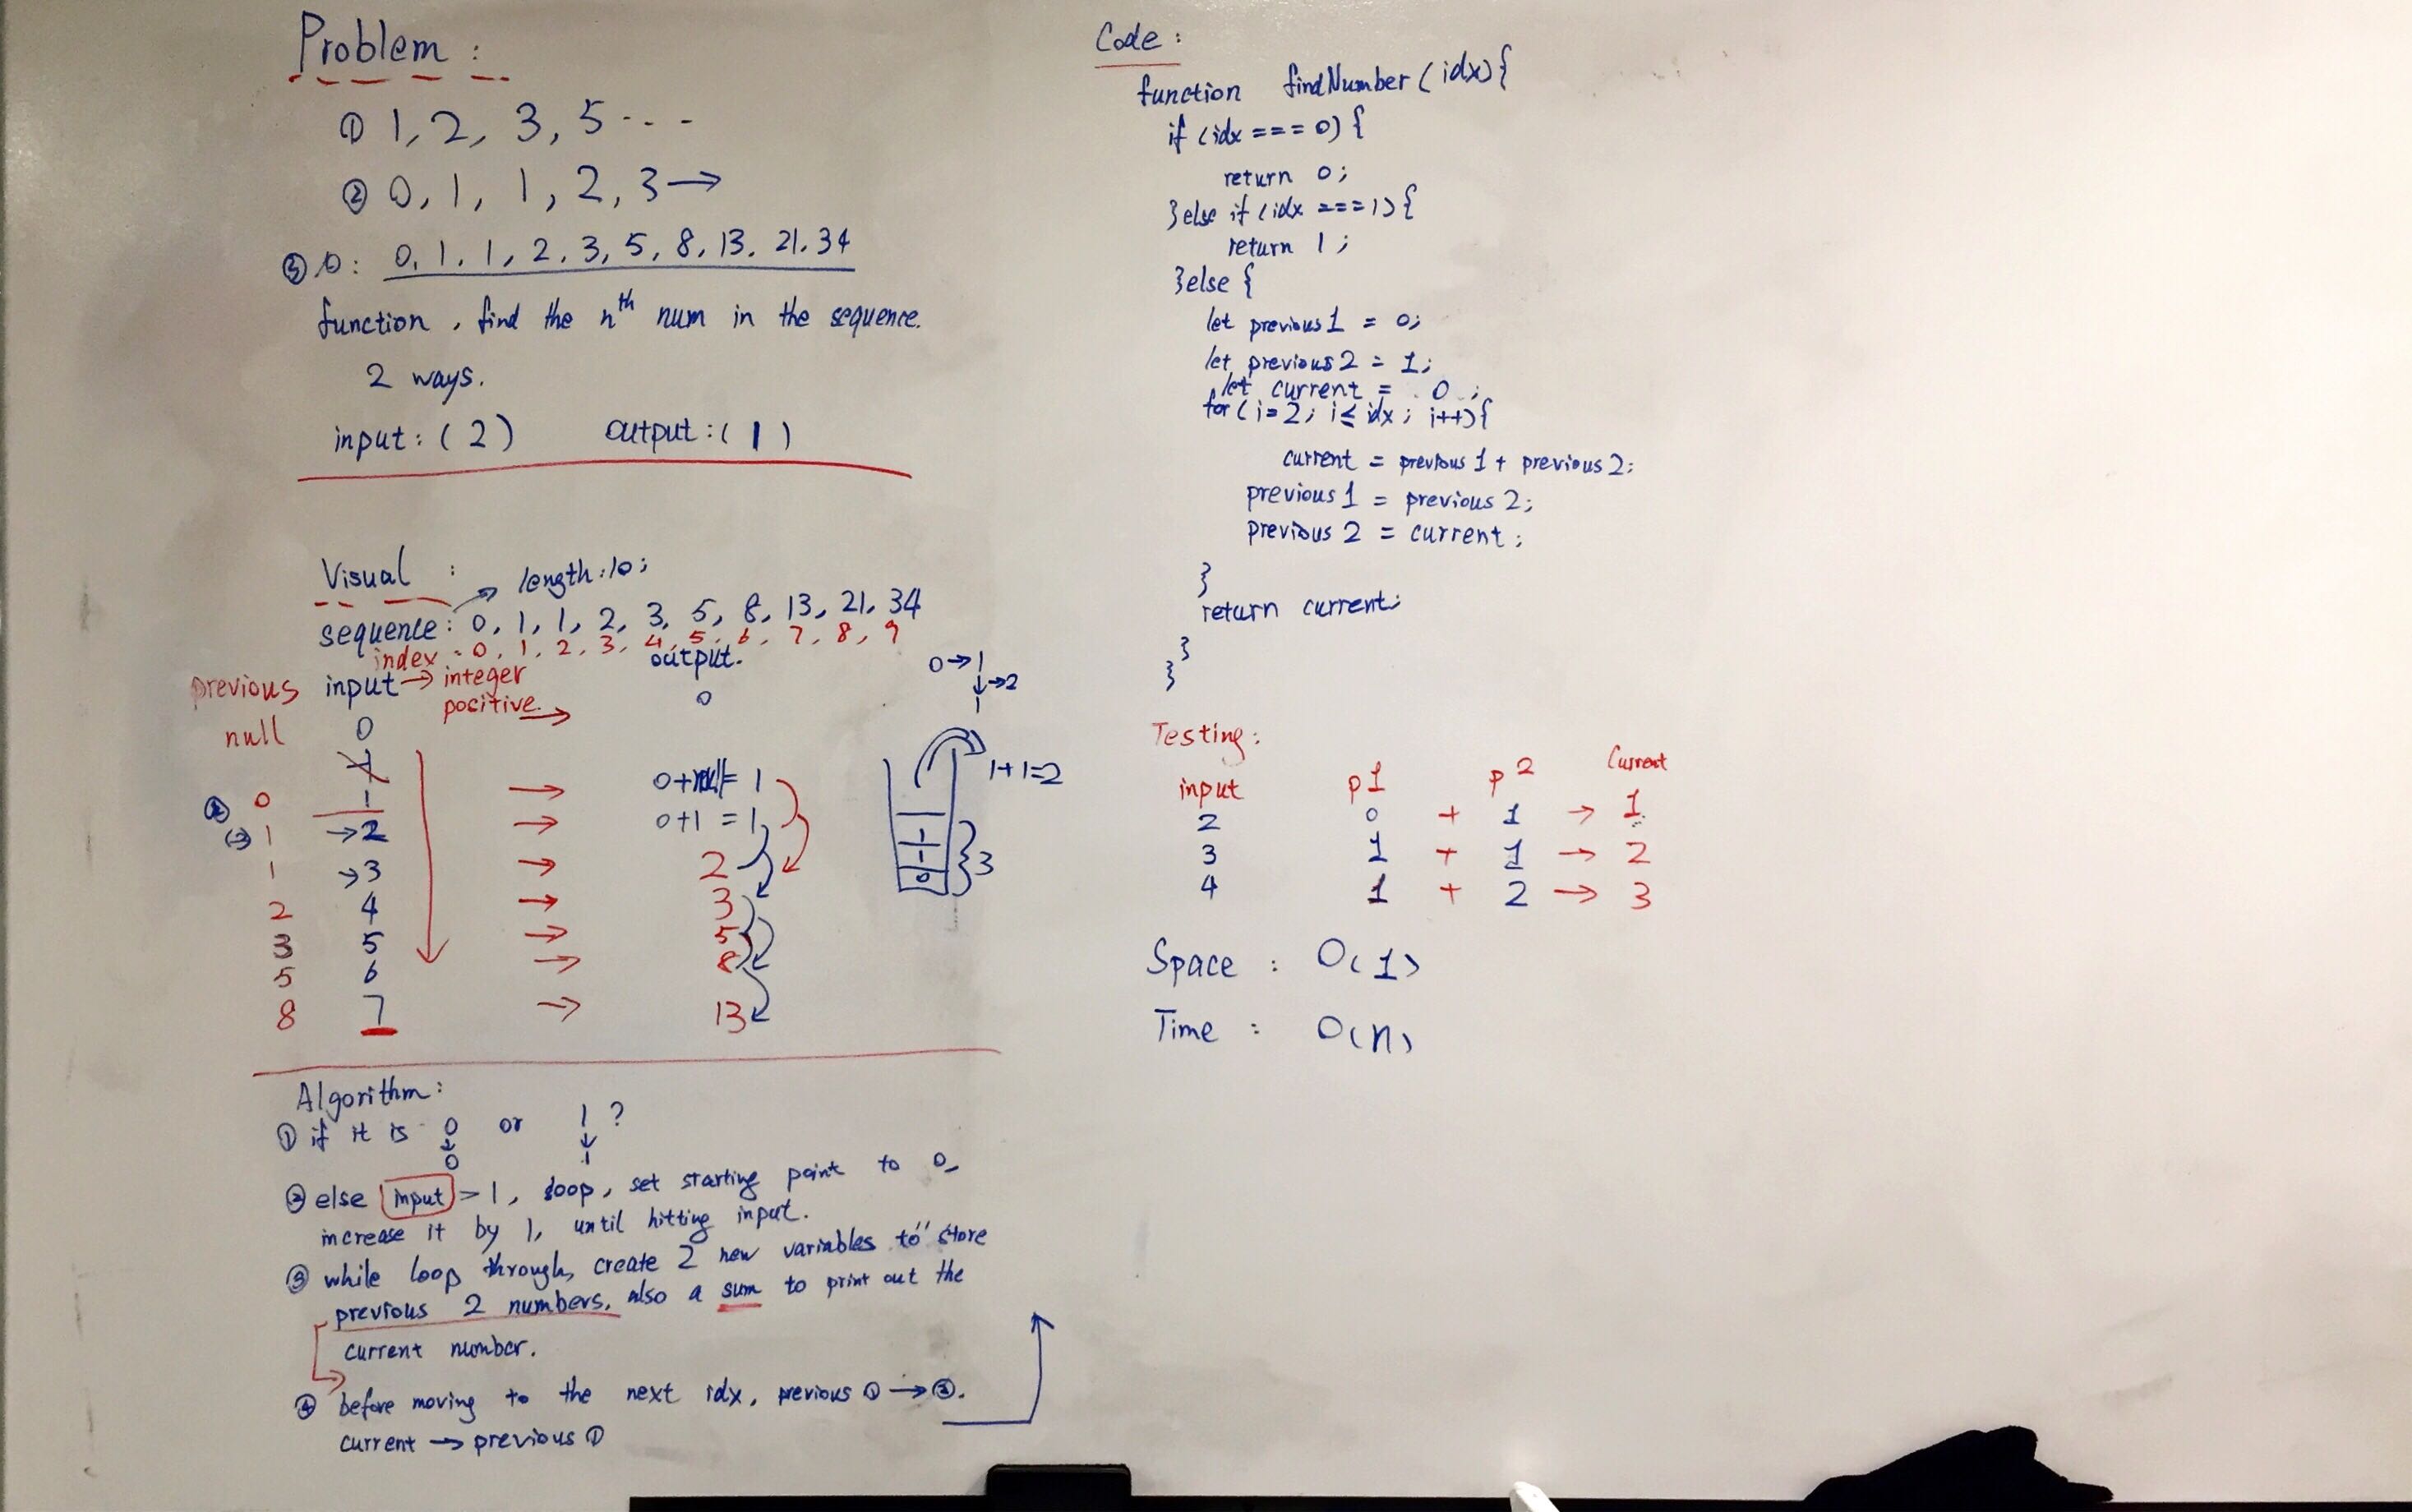 Problem :
① 1, 2, 3, 5 ...
② 0, 1, 1, 2, 3 →
0, 1, 1, 2, 3, 5, 8, 13, 21, 34
function, find the nth num in the sequence.
2 ways.
input : ( 2 ) output : ( 1 )
Visual :
length : 10 ;
sequence : 0, 1, 1, 2, 3, 5, 8, 13, 21, 34
index : 0, 1, 2, 3, 4, 5, 6, 7, 8, 9
previous input → integer output.
positive → 0
null 0
0 1 → 0+null= 1
1 →2 → 0+1 = 1
1 →3 → 2
2 4 → 3
3 5 → 5
5 6 → 8
8 7 → 13
0 → 1
↓ → 2
1
1+1=2
1
1
0
3
Algorithm :
① if it is 0 or 1 ?
↓ ↓
0 1
② else input > 1, loop, set starting point to 0
increase it by 1, until hitting input.
③ while loop through, create 2 new variables to store
previous 2 numbers, also a sum to print out the
current number.
④ before moving to the next idx, previous ① → ②.
current → previous ①
Code :
function findNumber ( idx) {
if (idx === 0) {
return 0;
} else if (idx === 1) {
return 1 ;
} else {
let previous1 = 0;
let previous2 = 1;
let current = 0 ;
for ( i=2; i≤ idx ; i++) {
current = previous 1 + previous 2;
previous 1 = previous 2;
previous 2 = current ;
}
return current;
}
}
Testing :
input p1 p2 Current
2 0 + 1 → 1
3 1 + 1 → 2
4 1 + 2 → 3
Space : O(1)
Time : O(n)